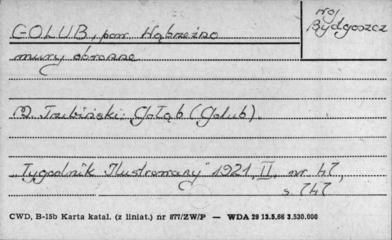 GOLUB, pow. Wąbrzeźno
woj.
Bydgoszcz
mury obronne
W. Trzebiński: Gołąb (Golub).
"Tygodnik Ilustrowany" 1921, II, nr. 47,
s. 747
CWD, B-15b Karta katal. (z liniat.) nr 877/ZW/P — WDA 29 13.5.66 3.530.000